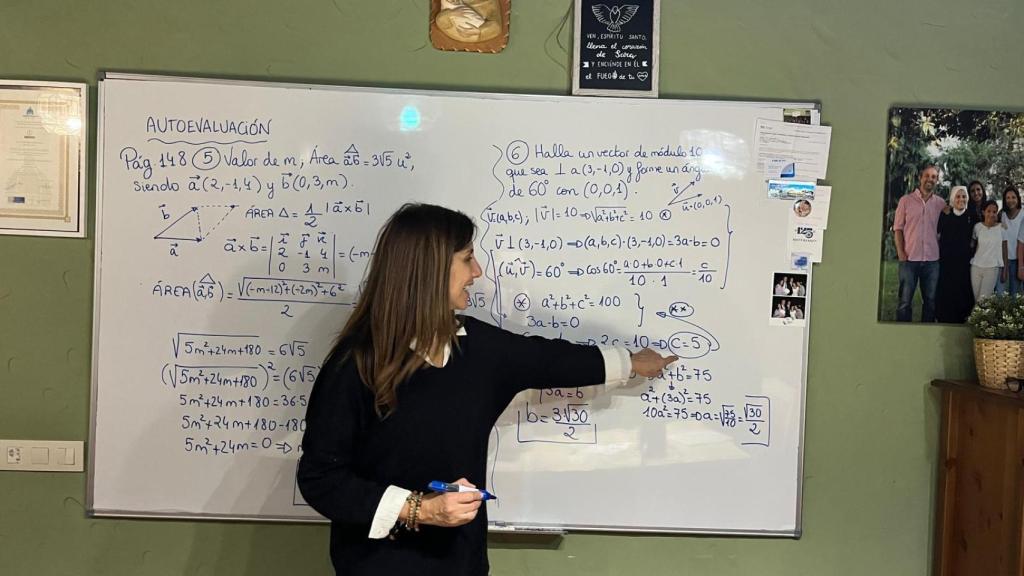 VEN, ESPÍRITU SANTO,
llena el corazón
de
Y ENCIÉNDE EN ÉL
el FUEGO de tu
AUTOEVALUACIÓN
Pág. 148 ⑤ Valor de m; Área a,b = 3√5 u²,
siendo a(2,-1,4) y b(0,3,m).
b
a
ÁREA Δ = 1/2 |a×b|
a×b = | i j k |
2 -1 4
0 3 m | = (-m
ÁREA(a,b) = √((-m-12)²+(-2m)²+6²)/2
3√5
√(5m²+24m+180) = 6√5
(√(5m²+24m+180))² = (6√5
5m²+24m+180 = 36·5
5m²+24m+180-180
5m²+24m = 0 ⇒
⑥ Halla un vector de módulo 10
que sea ⊥ a (3,-1,0) y forme un áng
de 60° con (0,0,1).
v
u=(0,0,1)
v(a,b,c); |v| = 10 ⇒ √(a²+b²+c²) = 10 ⊛
v ⊥ (3,-1,0) ⇒ (a,b,c)·(3,-1,0) = 3a-b = 0
(u,v) = 60° ⇒ cos60° = (a·0+b·0+c·1)/(10·1) = c/10
⊛ a²+b²+c² = 100
(**)
3a-b=0
⇒ 2c=10 ⇒ c=5
a²+b²=75
3a=b
a²+(3a)²=75
b = 3√30/2
10a²=75 ⇒ a = = √30/2